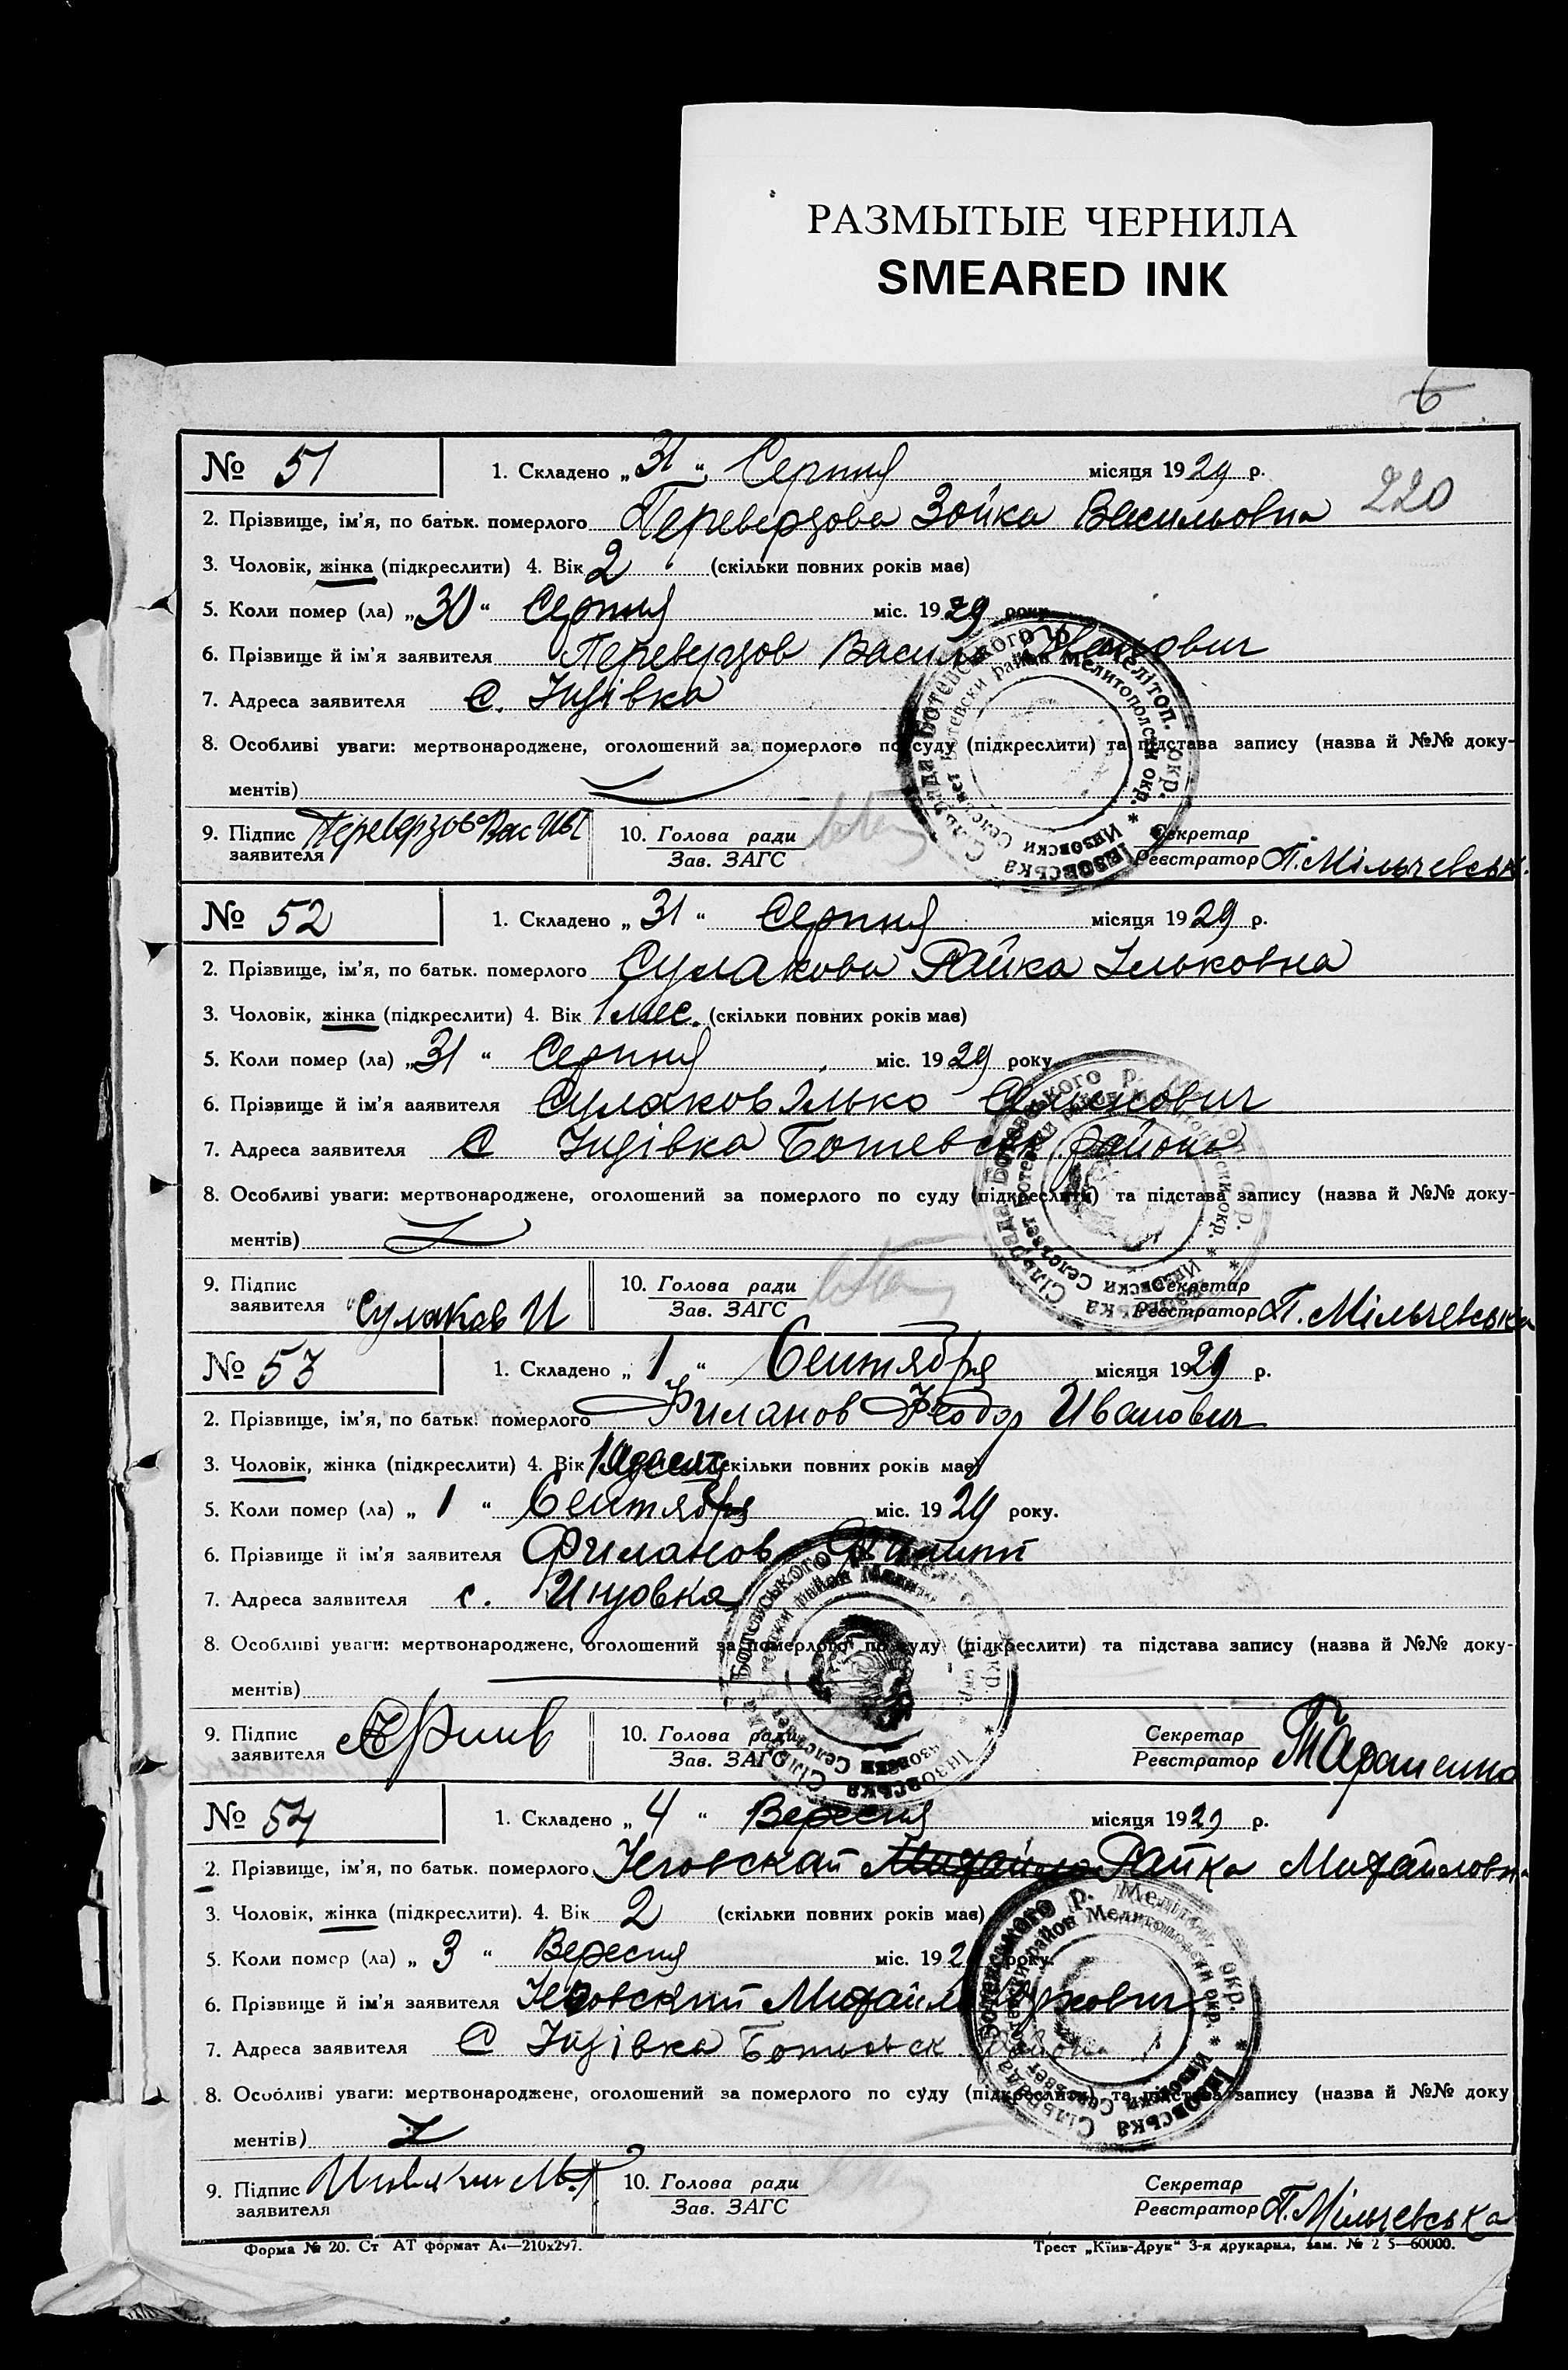 РАЗМЫТЫЕ ЧЕРНИЛА
SMEARED INK
6
№ 51 1. Складено „31“ Серпня місяця 1929 р. 220
2. Прізвище, ім’я, по батьк. померлого Переверзова Зойка Васильовна
3. Чоловік, жінка (підкреслити) 4. Вік 2 (скільки повних років має)
5. Коли помер (ла) „30“ Серпня міс. 1929 року
6. Прізвище й ім’я заявителя Переверзов Василь Іванович
7. Адреса заявителя с. Інзівка
8. Особливі уваги: мертвонароджене, оголошений за померлого по суду (підкреслити) та підстава запису (назва й №№ доку-
ментів)
9. Підпис заявителя Переверзов Вас Ив 10. Голова ради Зав. ЗАГС Секретар Реєстратор П. Мільчевськ.
№ 52 1. Складено „31“ Серпня місяця 1929 р.
2. Прізвище, ім’я, по батьк. померлого Сулакова Райка Ільковна
3. Чоловік, жінка (підкреслити) 4. Вік 1 мес. (скільки повних років має)
5. Коли помер (ла) „31“ Серпня міс. 1929 року
6. Прізвище й ім’я ааявителя Сулаков Ілько
7. Адреса заявителя с Інзівка Ботевськ района
8. Особливі уваги: мертвонароджене, оголошений за померлого по суду (підкреслити) та підстава запису (назва й №№ доку-
ментів)
9. Підпис заявителя Сулаков И 10. Голова ради Зав. ЗАГС Секретар Реєстратор П. Мільчевська
№ 53 1. Складено „1“ Сентября місяця 1929 р.
2. Прізвище, ім’я, по батьк. померлого Филанов Феодор Иванович
3. Чоловік, жінка (підкреслити) 4. Вік скільки повних років має)
5. Коли помер (ла) „1“ Сентября міс. 1929 року.
6. Прізвище й ім’я заявителя Филанов Филипп
7. Адреса заявителя с. Инзовка
8. Особливі уваги: мертвонароджене, оголошений за померлого по суду (підкреслити) та підстава запису (назва й №№ доку-
ментів)
9. Підпис заявителя 10. Голова ради Зав. ЗАГС Секретар Реєстратор Тараненко
№ 54 1. Складено „4“ Вересня місяця 1929 р.
2. Прізвище, ім’я, по батьк. померлого Райка Михайловна
3. Чоловік, жінка (підкреслити). 4. Вік 2 (скільки повних років має)
5. Коли помер (ла) „3“ Вересня міс. 192 року.
6. Прізвище й ім’я заявителя Михайло
7. Адреса заявителя с Інзівка Ботевськ района
8. Особливі уваги: мертвонароджене, оголошений за померлого по суду (підкреслити) та підстава запису (назва й №№ доку
ментів)
9. Підпис заявителя 10. Голова ради Зав. ЗАГС Секретар Реєстратор П. Мільчевська
Форма № 20. Ст АТ формат А4—210х297. Трест „Київ-Друк“ 3-я друкарня, зам. № 2 5—60000.